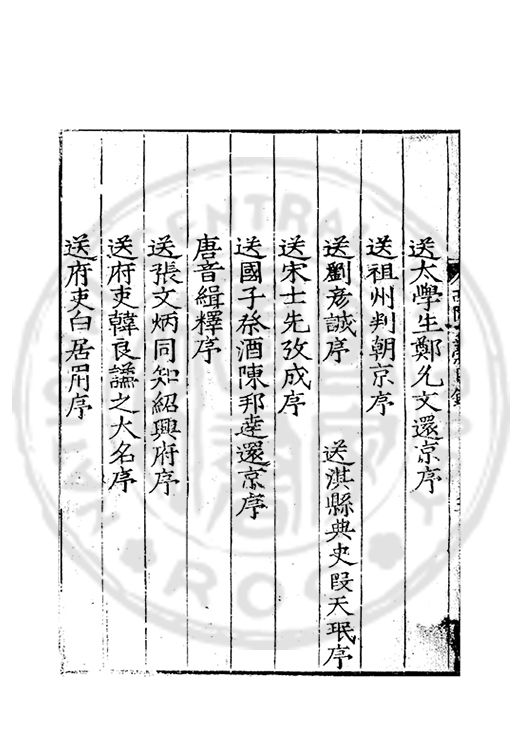 送太學生鄭允文還京序
送祖州判朝京序
送劉彥誠序　送淇縣典史段天珉序
送宋士先攷成序
送國子祭酒陳邦達還京序
唐音緝釋序
送張文炳同知紹興府序
送府吏韓良謠之大名序
送府吏白居用序